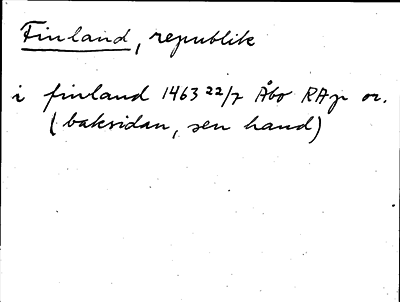 Finland, republik
i finland 1463 22/7 Åbo RAp or.
(baksidan, sen hand)